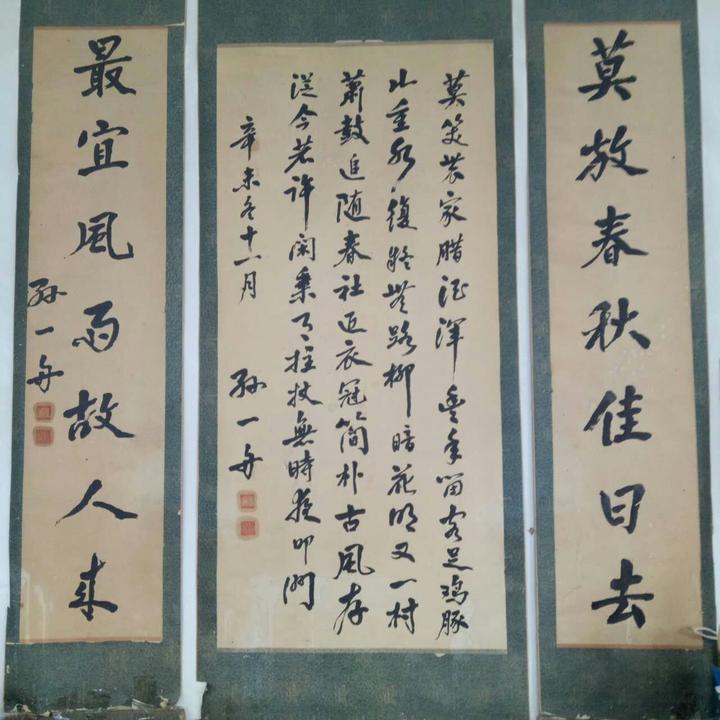 莫放春秋佳日去
莫笑農家腊酒渾豐年留客足鸡豚
山重水複疑無路柳暗花明又一村
蕭鼓追随春社近衣冠簡朴古風存
從今若許閑乘月拄杖無時夜叩門
辛未冬十一月
孙一舟
最宜風雨故人来
孙一舟